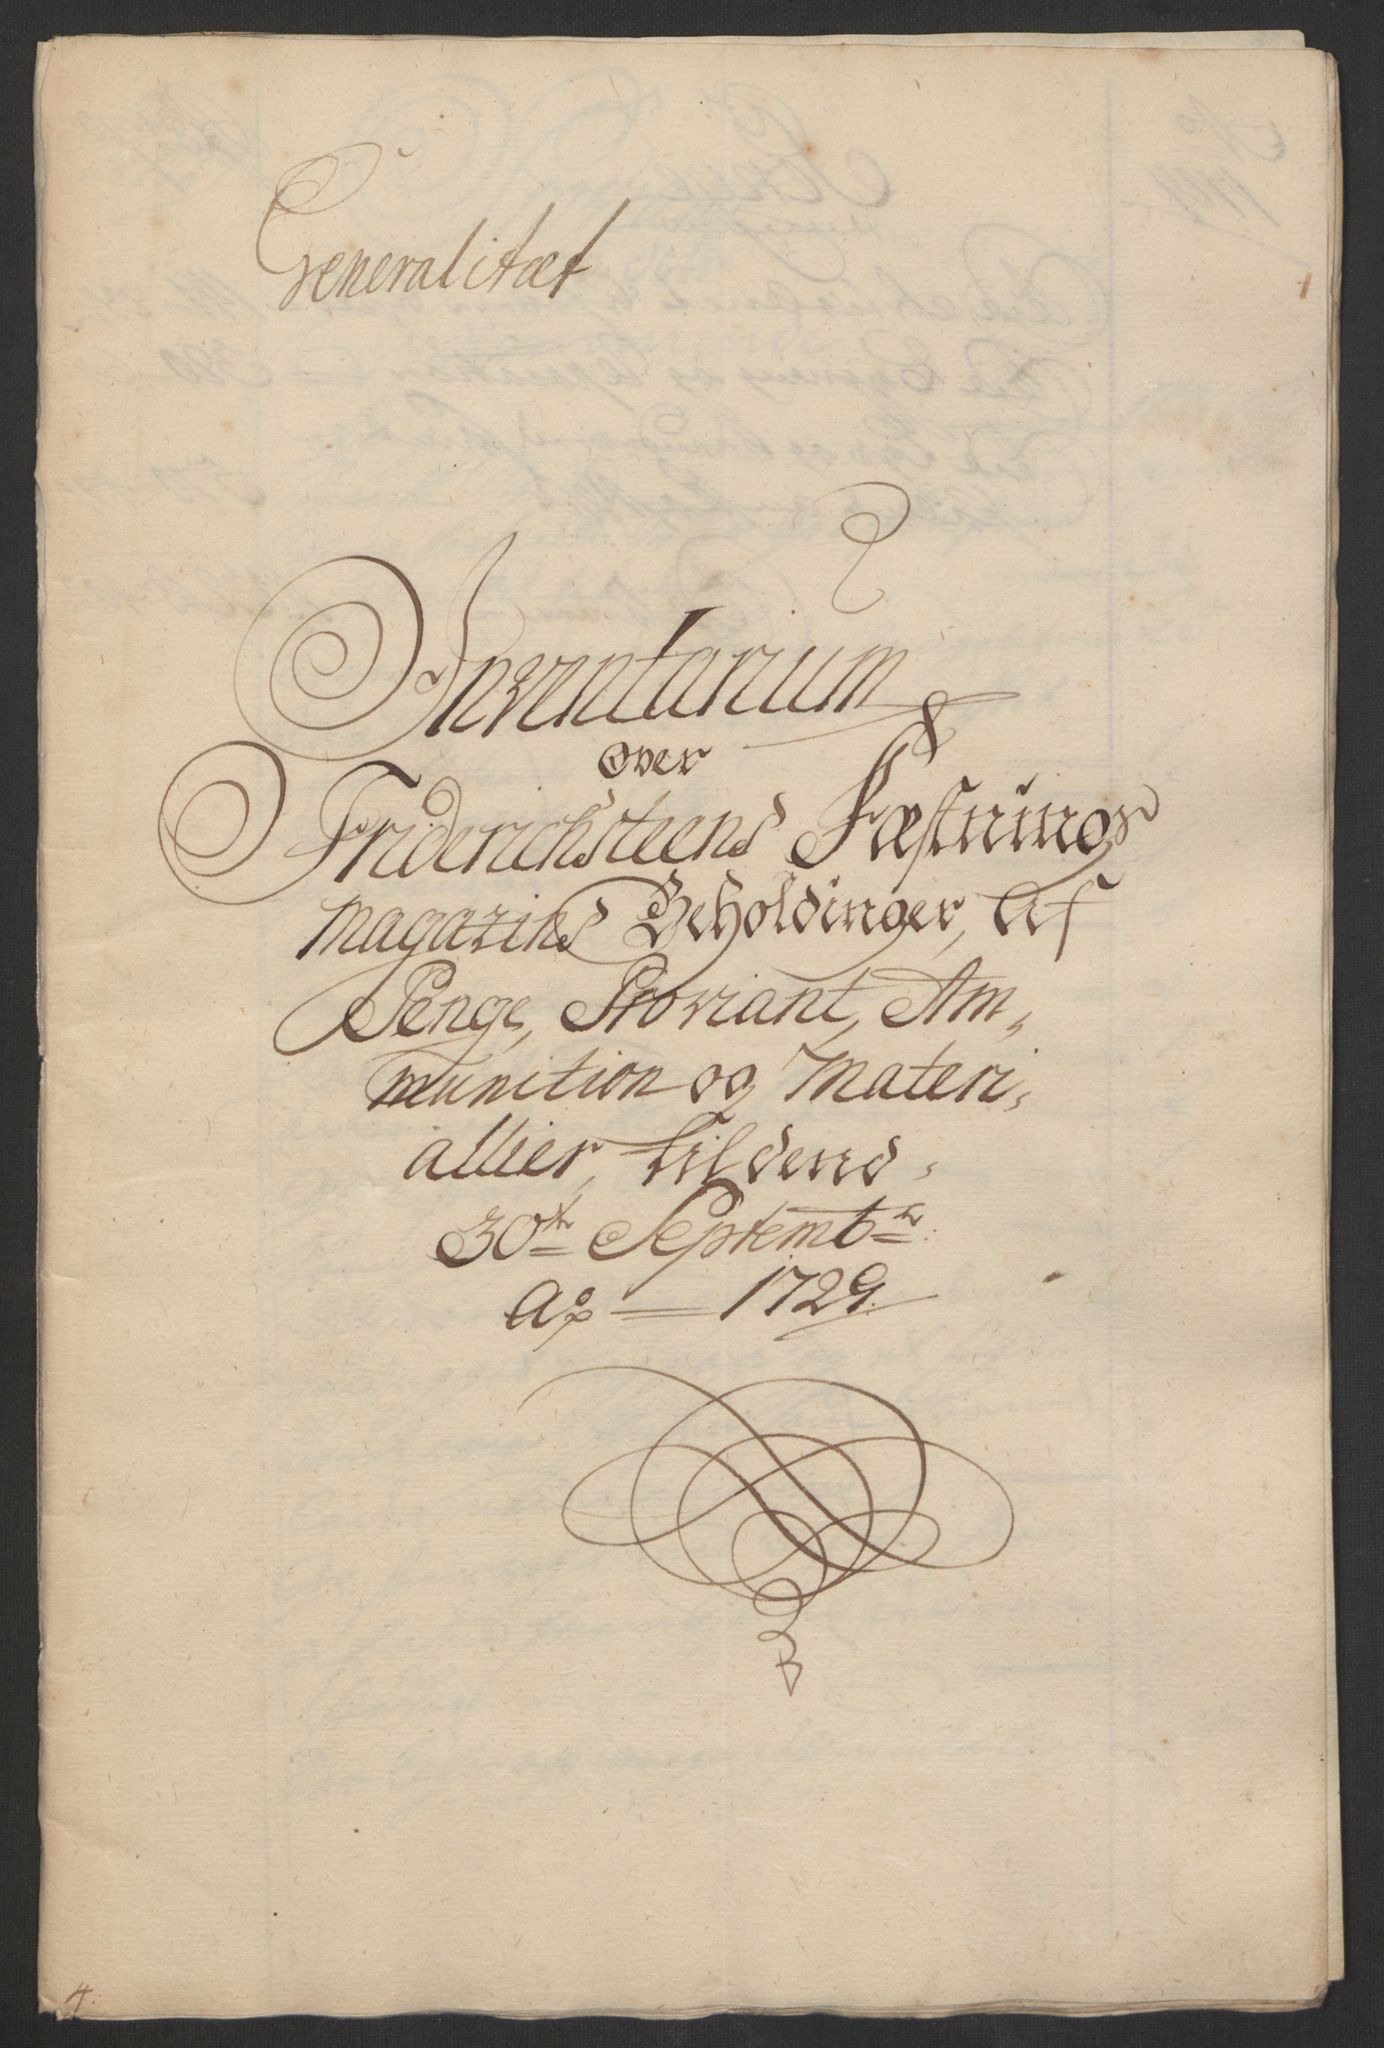 Generalitæt
Inventarium
over
Friderichsteens Fæstnings
Magazins Beholdinger, af
Penge, Proviant, Am„
munition og Materi„
allier, til dend
30te Septembr:
Ao 1729.
4.